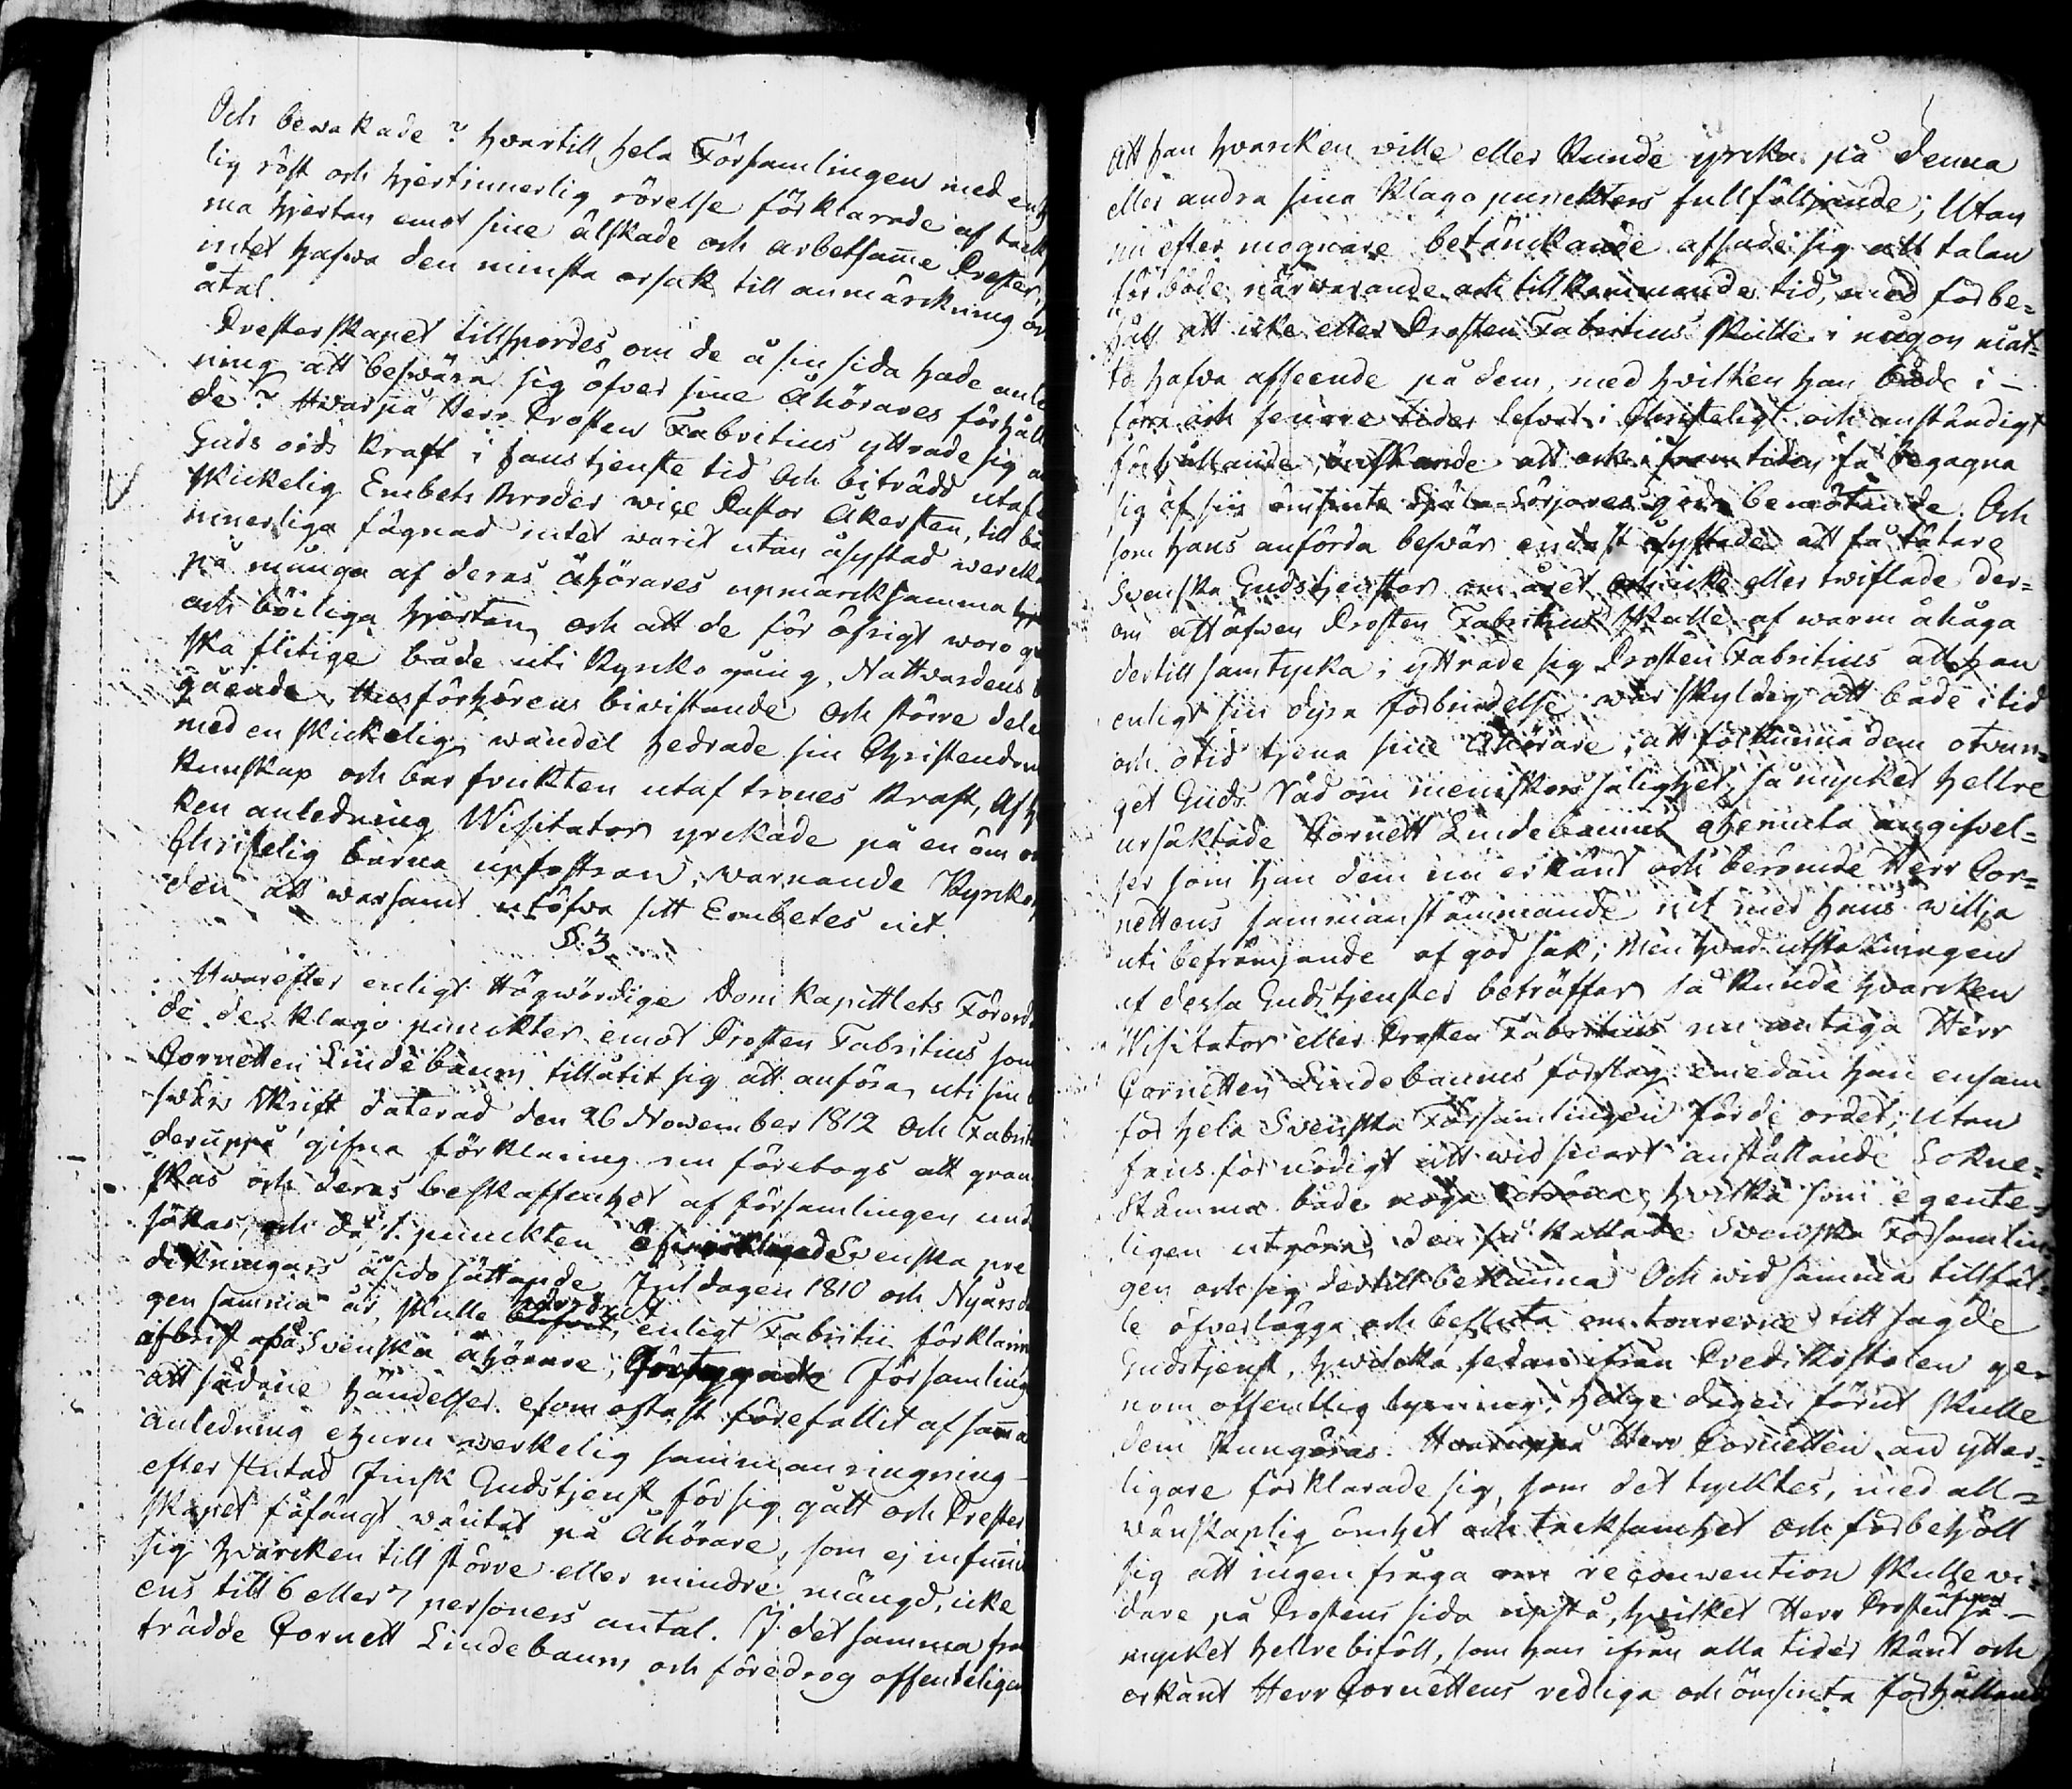 Och bewakade? hvartill hela Församlingen med en
lig röst och hjertinnerlig rörelse förklarade af tack
ma hjertan emot sine älskade och arbetsamme Prester,
intet hafwa den minsta orsak till anmärckning
åtal.
Presterskapet tillspordes om de å sin sida hade anle
ning att beswära sig öfver sine Åhörares förhåll
de? Hwarpå Herr Prosten Fabritius yttrade sig
Guds ords kraft i hans tjenste tid och biträdd utaf
skickelig Embets Broder wice Pastor Åkersten, till
innerliga fägnad intet warit utan åsyftad werck
på många af deras åhörares upmärcksamma
och böjliga hjertan, och att de för öfrigt woro
ska flitige både uti Kyrko gång, Nattvardens
gående, Husförhörens biwistande och större dele
med en skickelig wandel hedrade sin Christendom
kunskap och bar frukten utaf trones kraft, Af
ken anledning Wisitator yrckade på en öm
Christelig barna upfostran, warnande Kyrko
den att warsamt utöfwa sitt Embetes nit.
§. 3.
Hwarefter enligt Högwördige Dom Kapittlets Förord
de de klago punckter emot Prosten Fabritius som
Cornetten Lindebaum tillåtit sig att anföra uti sin
swärs skrift daterad den 26 November 1812 och Fabriti
deruppå gifna förklaring nu företogs att gran
skas och deras beskaffenhet af församlingen und
sökas, och då 1. punckten Svenska pre
dikningars åsido sättande Juldagen 1810 och Nyårsd
gen samma år, skulle härrört, enligt Fabritii förklarin
af brist på Svenska åhörare, Församling
att sådane händelser, esom oftast förefallit af samma
anledning ehuru werkelig sammanringning
efter slutad Finsk Gudstjenst för sig gått och Prester
skapet fåfängt wäntat på Åhörare, som ej infunnit
sig hvarcken till större eller mindre mängd, icke
ens till 6 eller 7 personers antal. I det samma fram
trädde Cornett Lindebaum och föredrog offenteligen
Att han hvarcken wille eller kunde yrcka på denna
eller andra sina Klago puncktters fullföljande; Utan
nu efter mognare betänckande afsade sig allt talan
för både närwarande och tillkommande tid, med förbe=
håll att icke eller Prosten Fabritius skulle i någon måt=
to hafwa afseende på dem, med hvilken han både i
förre och senare tider lefwat i Christeligt och anständigt
förhållande, önskande att ock i framtiden få begagna
sig af sin ömsinte Själa-Sörjares goda bemötande. Och
som hans anförda beswär endast åsyftade att få tätare
Svenska Gudstjenster om året och icke eller twiflade der=
om att äfwen Prosten Fabritius skulle af warm åhåga
dertill samtycka; yttrade sig Prosten Fabritius att han
enligt sin dyra förbindelse war skyldig att både i tid
och otid tjena sine Åhörare, att förkunna dem otvun=
get Guds Råd om menniskors salighet, så mycket hellre
ursäktade Cornett Lindebaums ehemula angifvel=
ser som han dem nu erkänt och berömde Herr Cor=
nettens sammanstämmande nit med hans willja
uti befrämjande af god sak; Men hvad utstakningen
af dessa Gudstjenster beträffar så kunde hvarcken
Wisitator eller Prosten Fabritius nu antaga Herr
Cornetten Lindebaums förslag emedan han ensam
för hela Svenska Församlingen förde ordet; Utan
fans för nödigt att wid snart anställande Sokne=
Stämma både höga hvilka som egente=
ligen utgöra den så kallade Svenska Församlin=
gen och sig dertill bekänna Och wid samma tillfäl=
le öfverlägga och besluta om tourerne till sagde
Gudstjenst, hwilcka sedan ifrån Predikostolen ge=
nom offentlig lysning, Helge dagen förut skulle
dem kungöras. Hwaruppå Herr Cornetten än ytter=
ligare förklarade sig, som det tycktes, med all=
wänskaplig ömhet och tacksamhet och förbehöll
sig att ingen fråga om reconvention skulle wi=
dare på Prostens sida upstå, hvilket Herr Prosten äfven så
mycket hellre biföll, som han ifrån alla tider känt och
erkänt Herr Cornettens redliga och ömsinta förhålland